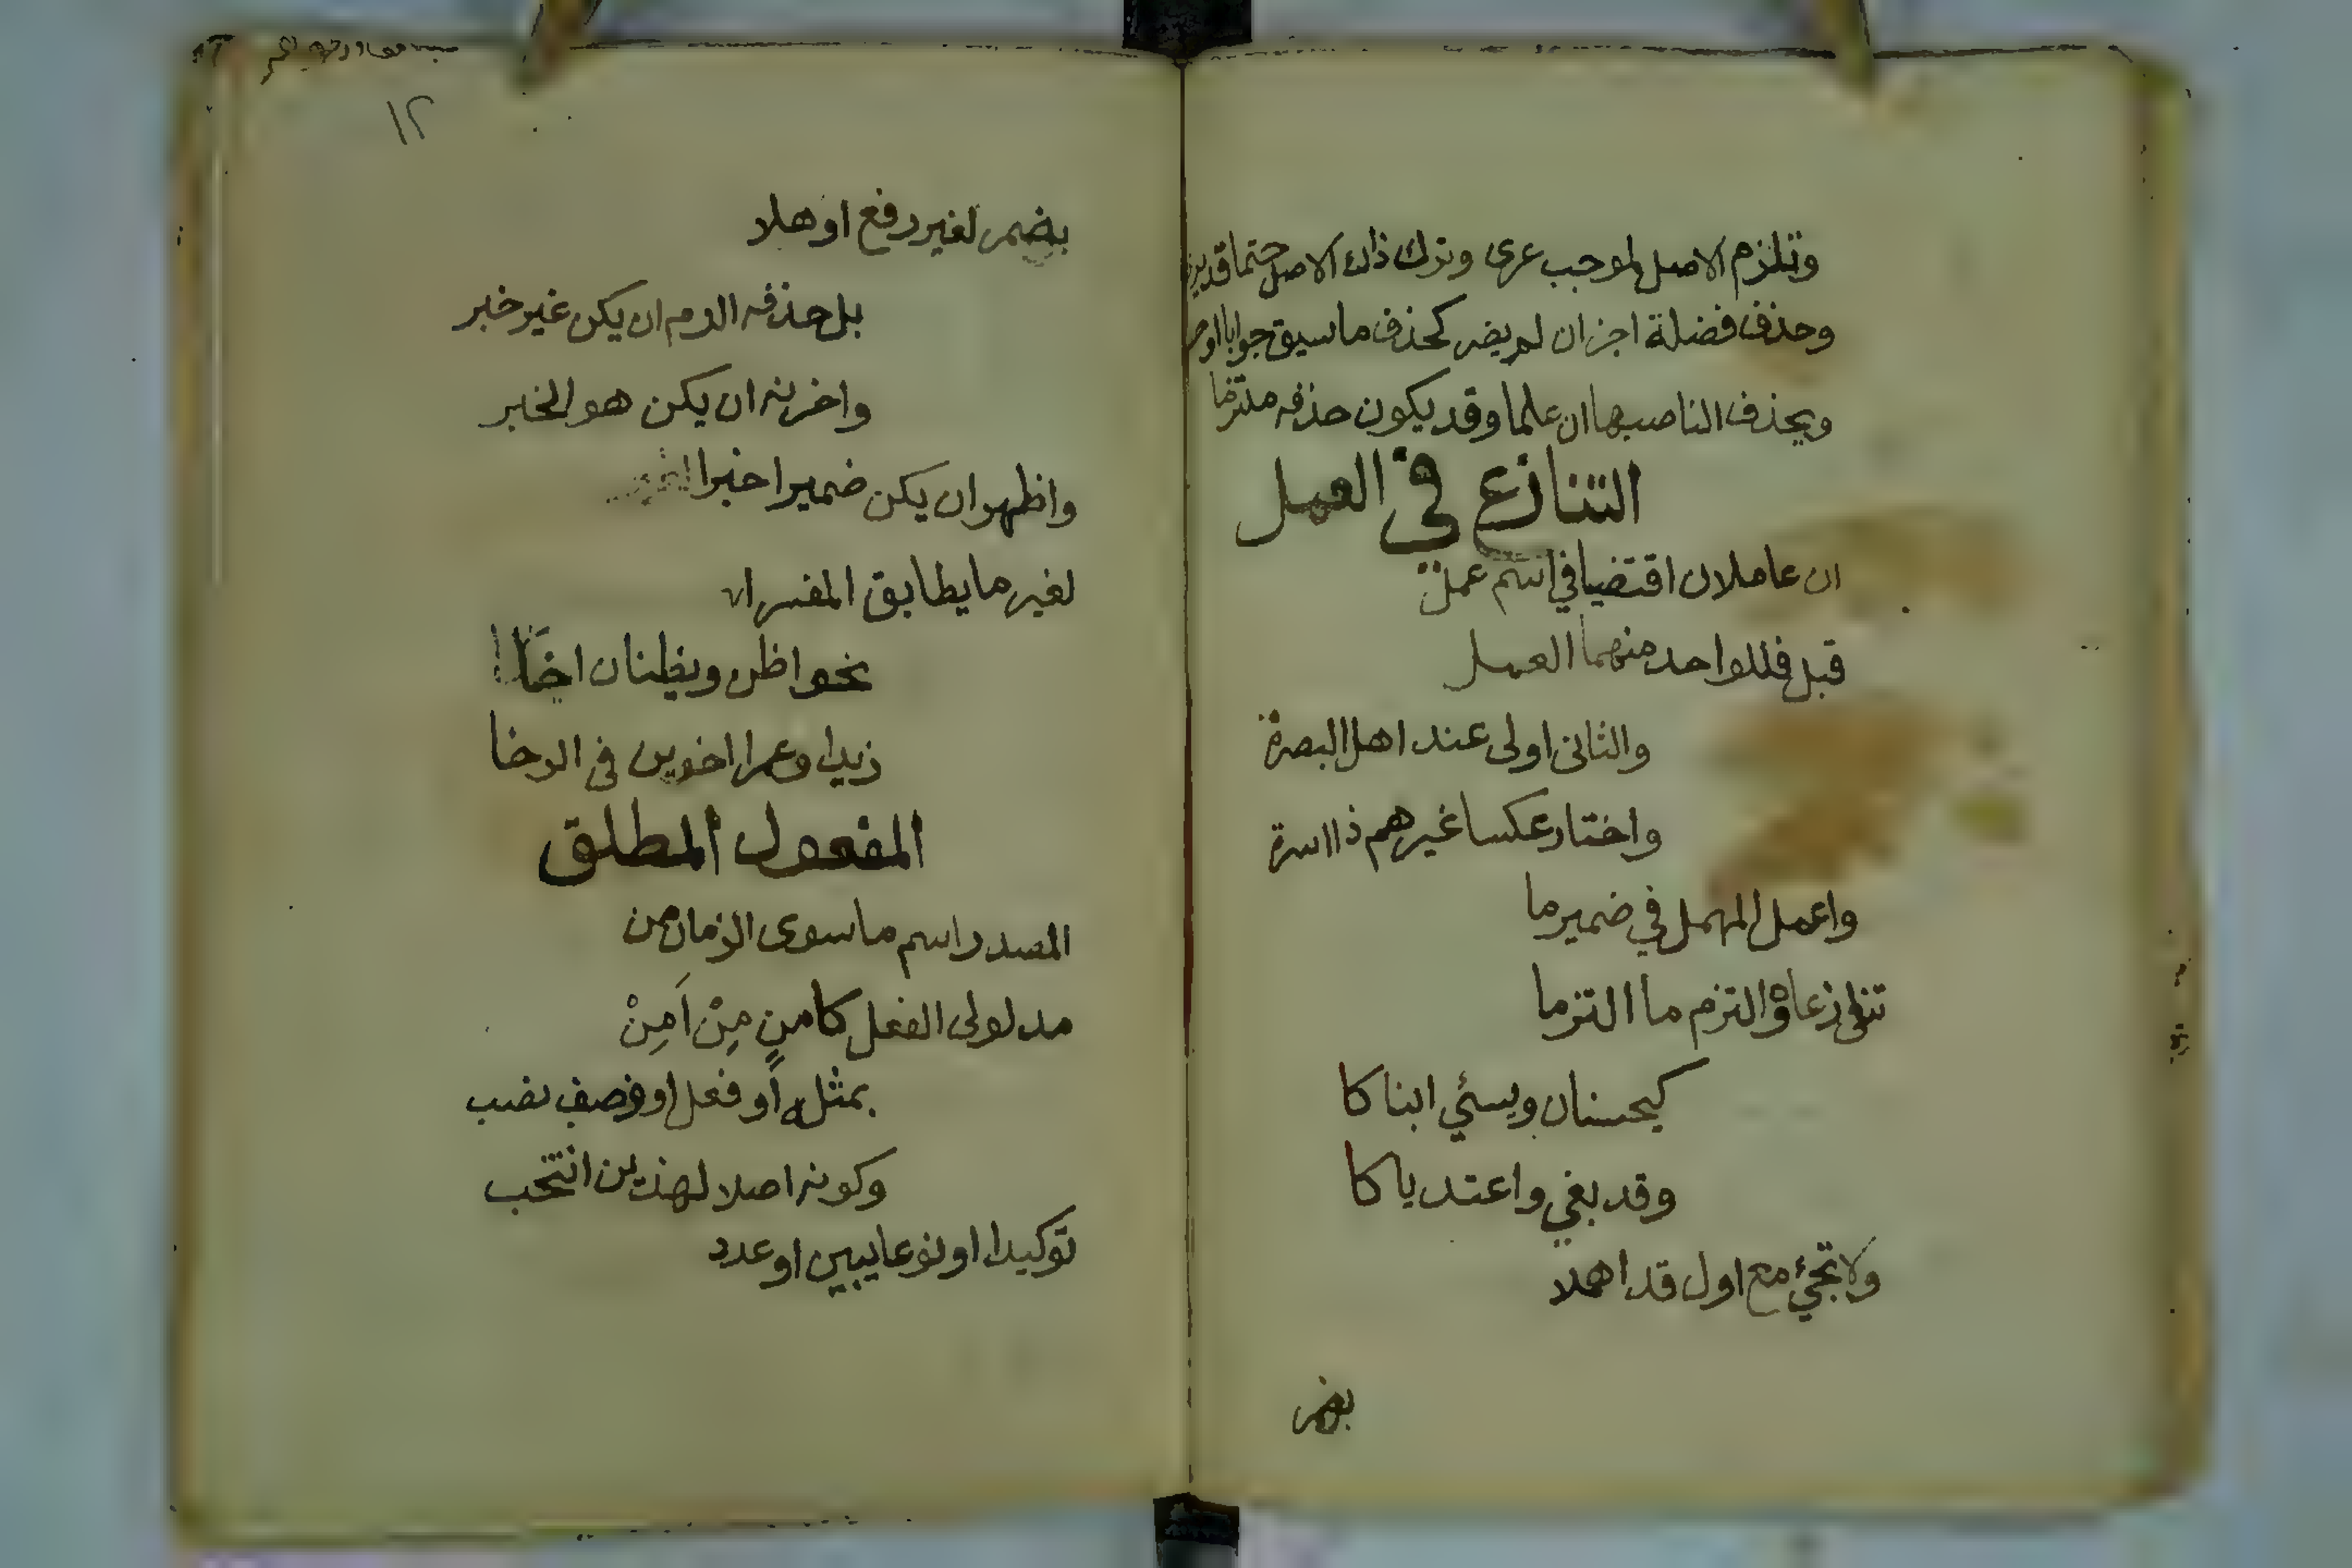 وتلزم الاصل لموجب عرى وترك ذاك الاصل حتما قد يرى
وحذف فضلة اجز ان لم يضر كحذف ما سيق جوابا او حصر
ويحذف الناصبها ان علما وقد يكون حذفه ملتزما
التنازع في العمل
ان عاملان اقتضيا في اسم عمل
قبل فللواحد منهما العمل
والثاني اولى عند اهل البصرة
واختار عكسا غيرهم ذا اسرة
واعمل المهمل في ضمير ما
تنازعاه والتزم ما التزما
كيحسنان ويسئي ابناكا
وقد بغي واعتديا كا
ولا تجئ مع اول قد اهملا
بمضمر
١٢
بمضمر لغير رفع اوهلا
بل حذفه الزم ان يكن غير خبر
واخرنه ان يكن هو الخبر
واظهر ان يكن ضمير اخبرا
لغير ما يطابق المفسرا
نحو اظن ويظنان اخا
زيدا وعمرا اخوين في الرخا
المفعول المطلق
المصدر اسم ما سوى الزمان من
مدلولى الفعل كامنٍ مِنْ اَمِنْ
بمثله أو فعل او وصف نصب
وكونه اصلا لهذين انتخب
توكيدا او نوعا يبين او عدد